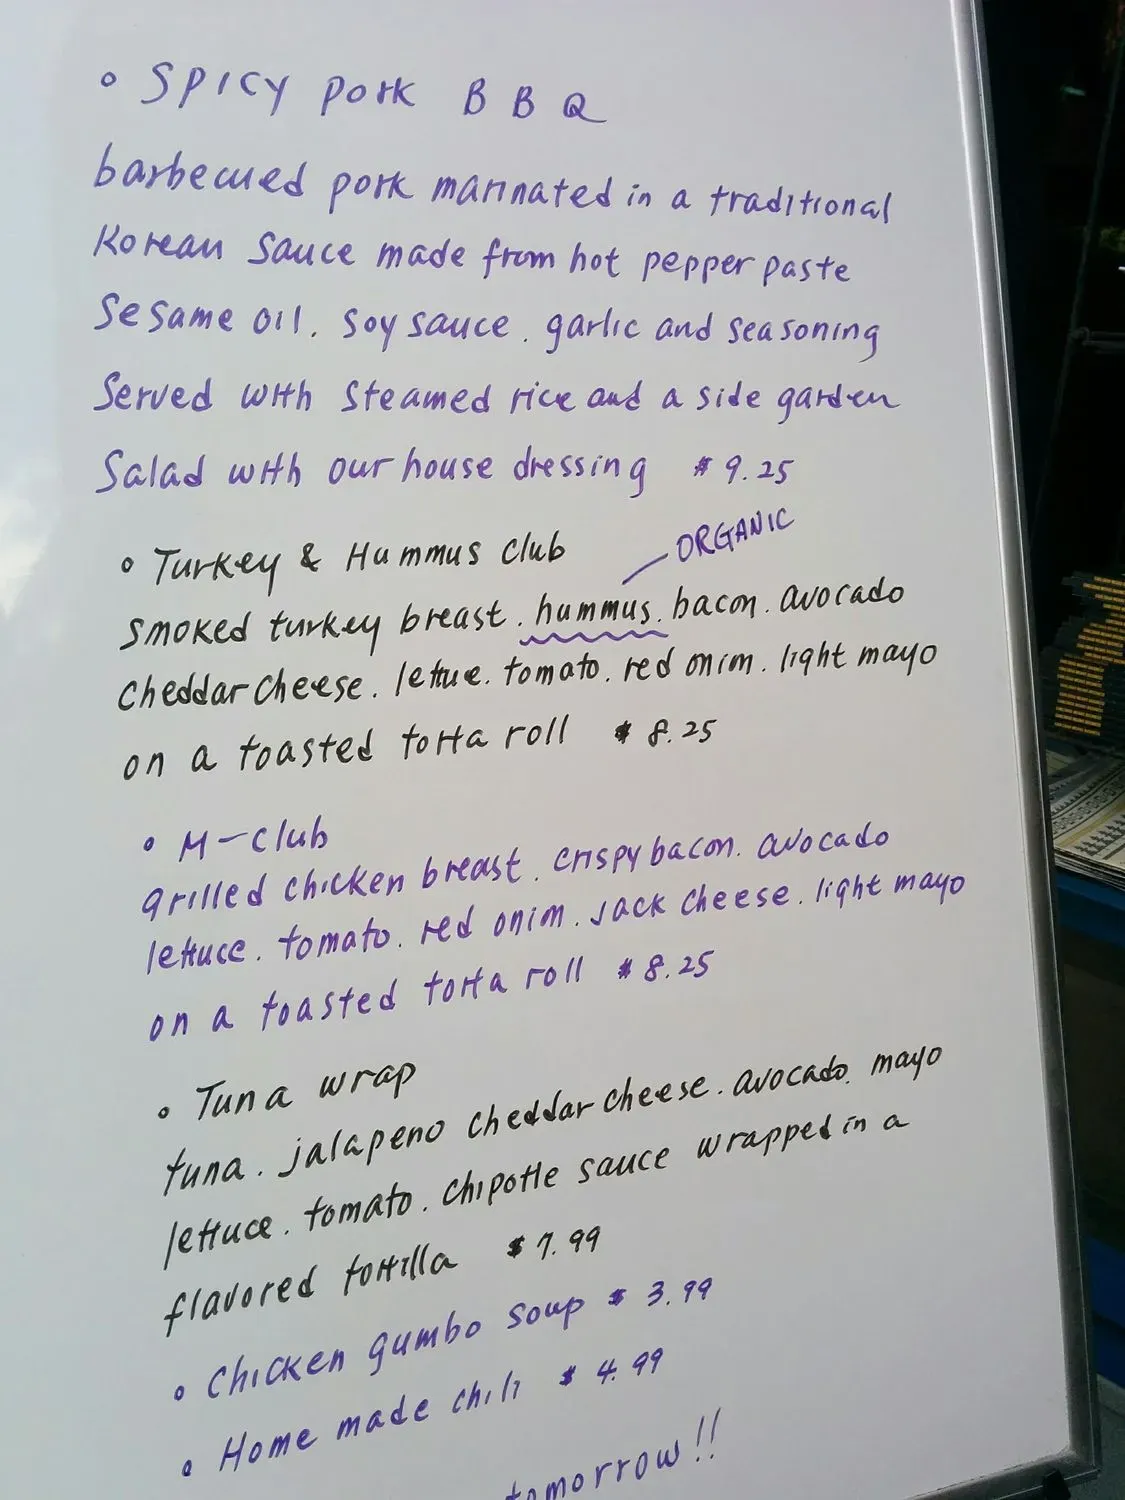 ° Spicy pork BBQ
barbecued pork marinated in a traditional
Korean sauce made from hot pepper paste
Sesame oil. soy sauce. garlic and seasoning
Served with steamed rice and a side garden
Salad with our house dressing $9.25
ORGANIC
° Turkey & Hummus club
smoked turkey breast. hummus. bacon. avocado
cheddar cheese. lettue. tomato. red onion. light mayo
on a toasted torta roll $8.25
° M-club
grilled chicken breast. crispy bacon. avocado
lettuce. tomato. red onion. Jack cheese. light mayo
on a toasted torta roll $8.25
° Tuna wrap
tuna. jalapeno cheddar cheese. avocado. mayo
lettuce. tomato. chipotle sauce wrapped in a
flavored tortilla $7.99
° Chicken gumbo soup $3.99
° Home made chili $4.99
tomorrow!!